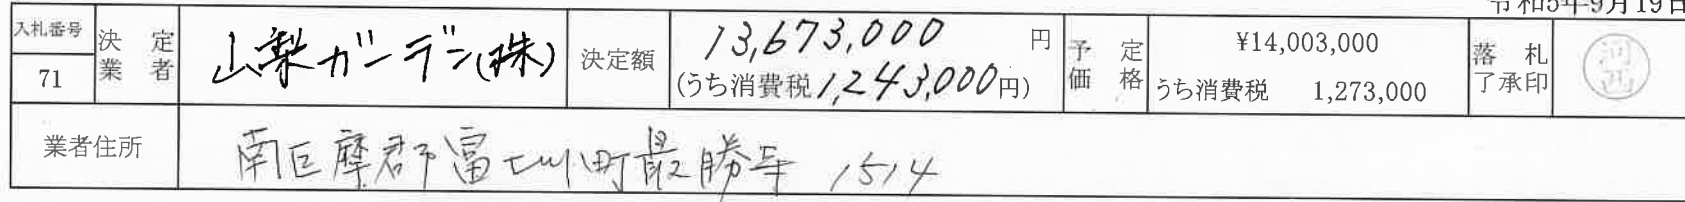 令和5年9月19日
入札番号
71
決定業者
山梨ガーデン(株)
決定額
13,673,000円
(うち消費税1,243,000円)
予定価格
¥14,003,000
うち消費税 1,273,000
落札了承印
河西
業者住所
南巨摩郡富士川町最勝寺 1514